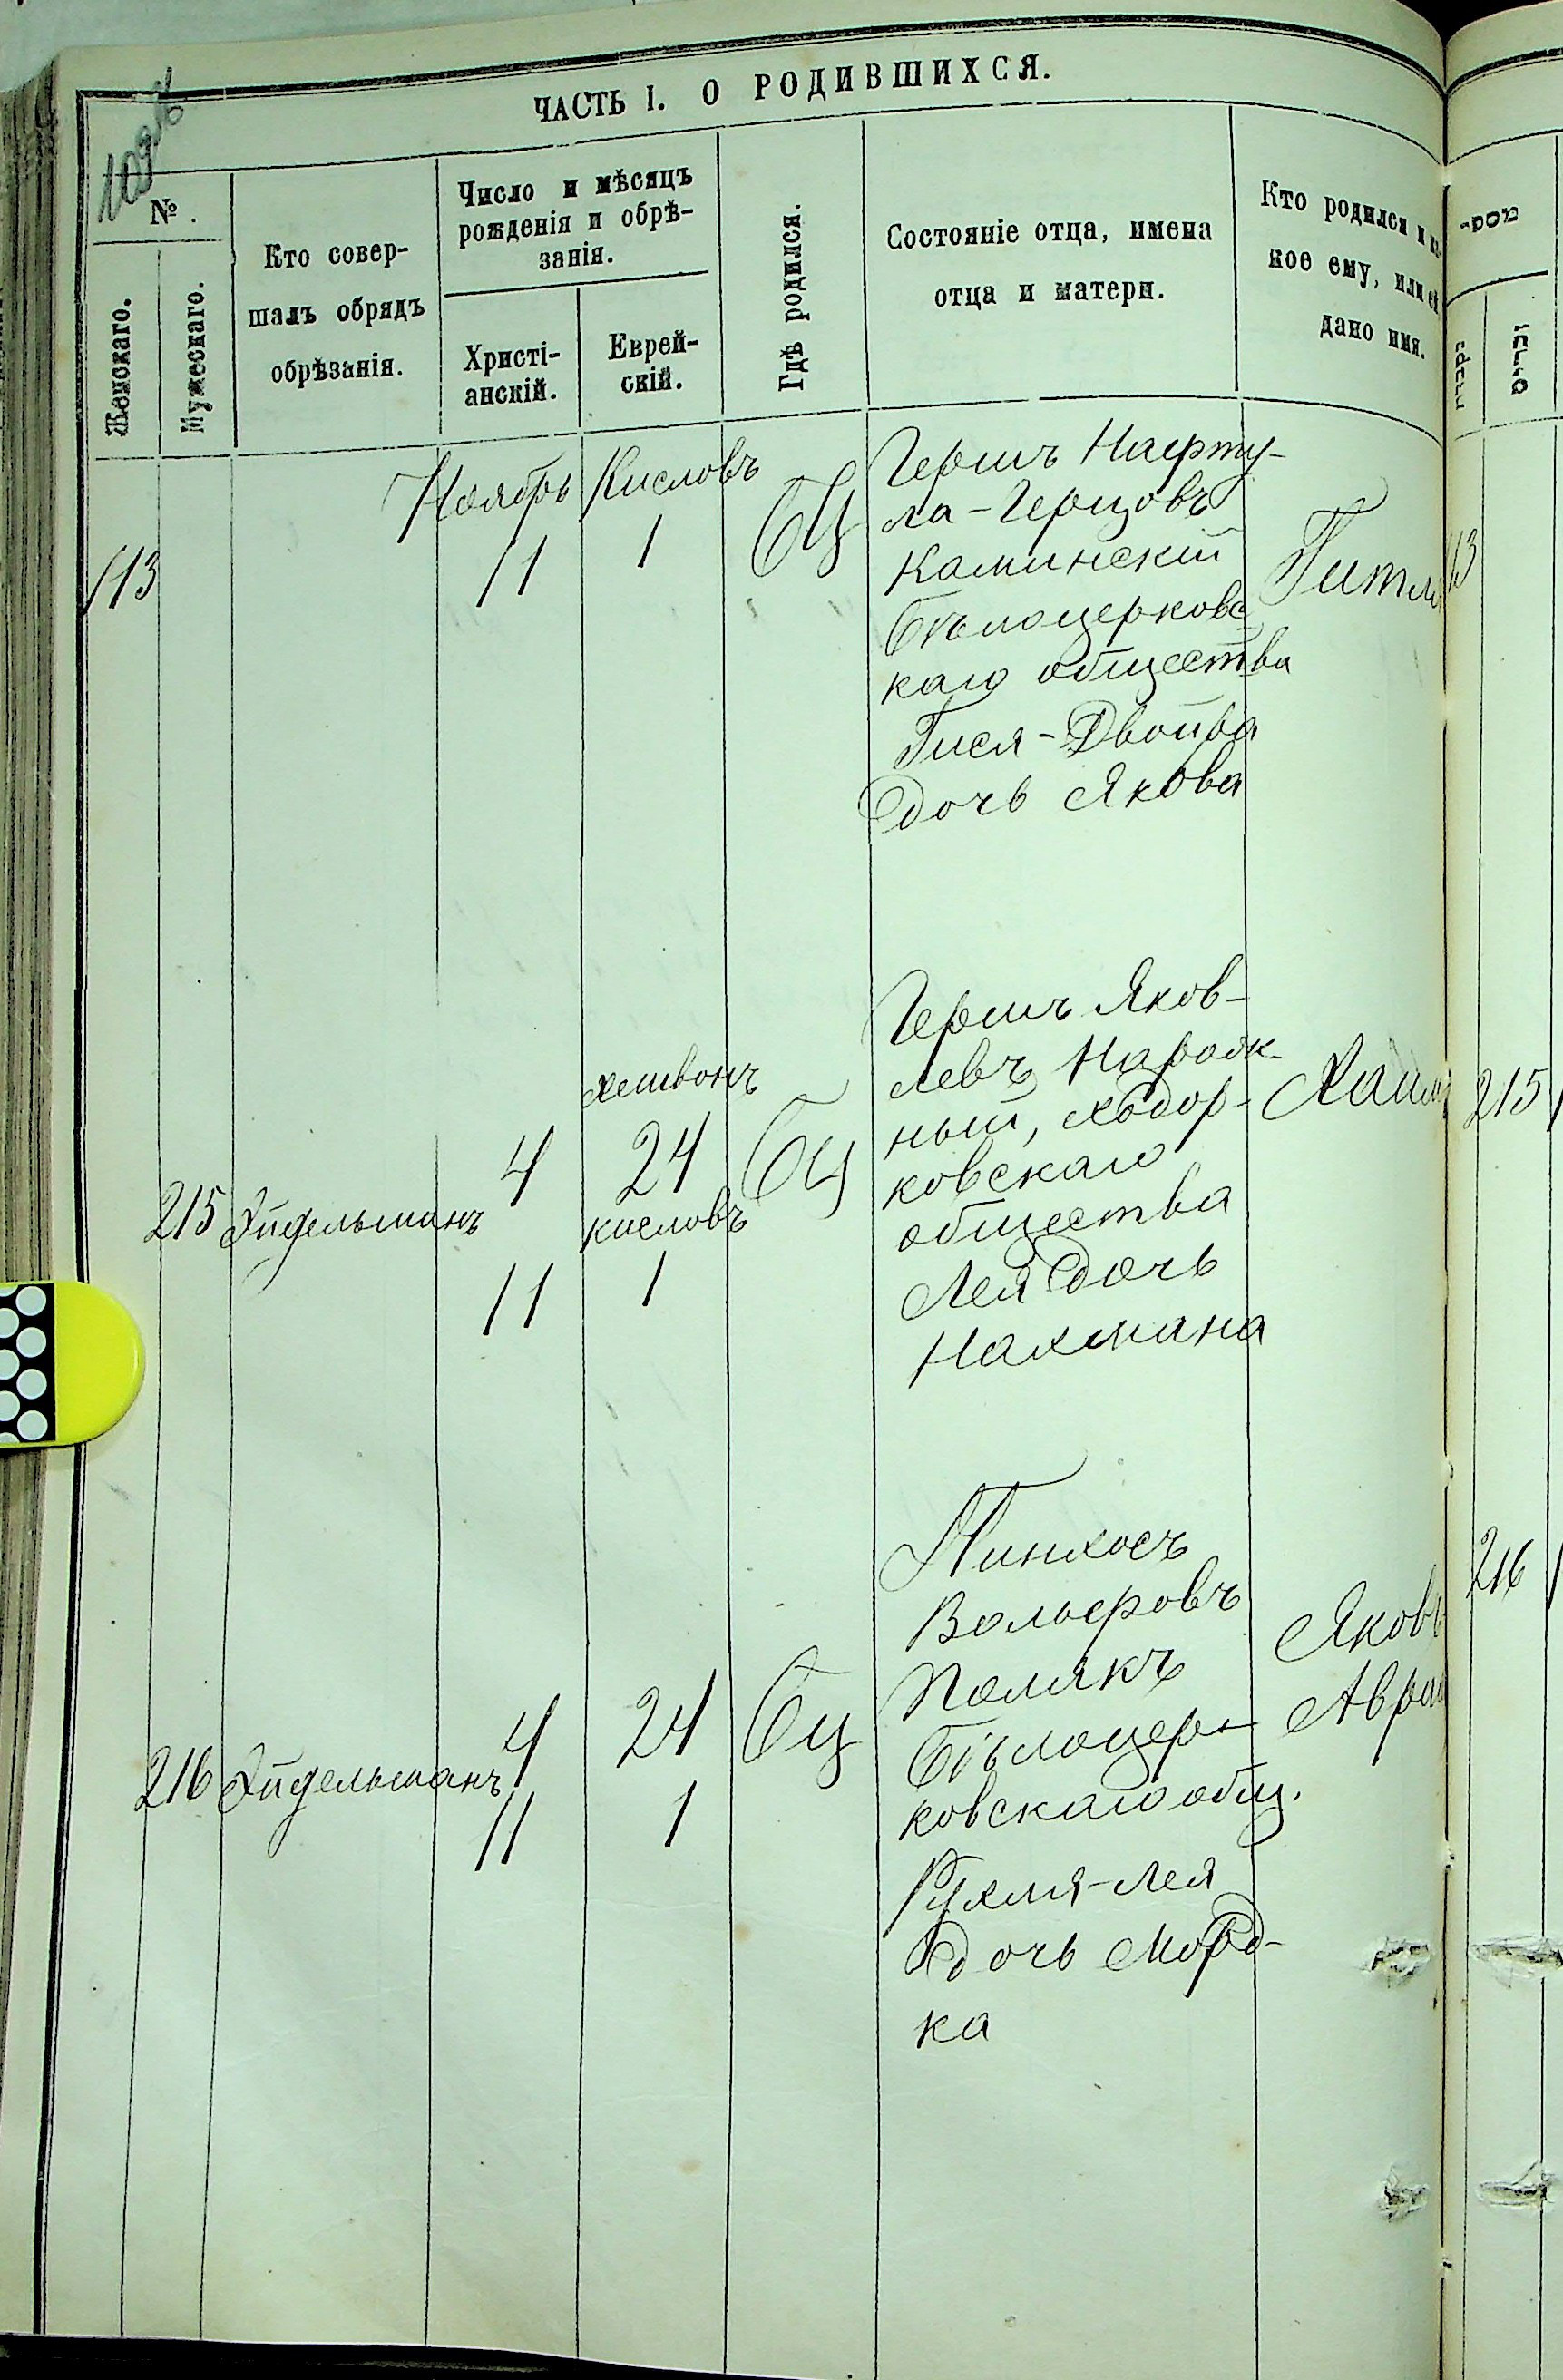 ЧАСТЬ I. О РОДИВШИХСЯ.
№.
Женскаго.
Мужескаго.
Кто совер-
шалъ обрядъ
обрѣзанія.
Число и мѣсяцъ
рожденія и обрѣ-
занія.
Христі-
анскій.
Еврей-
скій.
Гдѣ родился.
Состояніе отца, имена
отца и матери.
Кто родился и ка-
кое ему, или ей
дано имя.
113
Ноябрь
11
Кисловъ
1
БЦ
Гершъ Нафту-
ла-Герцовъ
Каминскій
Бѣлоцерковс
каго общества
Гися-Двойра
дочь Якова
Гитля
215
Эйдельманъ
4
11
хешвонъ
24
кисловъ
1
БЦ
Гершъ Яков-
левъ
ный, Ходор-
ковскаго
общества
Лея дочь
Нахмана
Хаим
216
Эйдельманъ
4
11
24
1
Бц
Пинхосъ
Вольфовъ
Полякъ
Бѣлоцер-
ковскаго общ.
Рухля-Лея
дочь Морд-
ка
Яковъ
Аврам
13
215
216